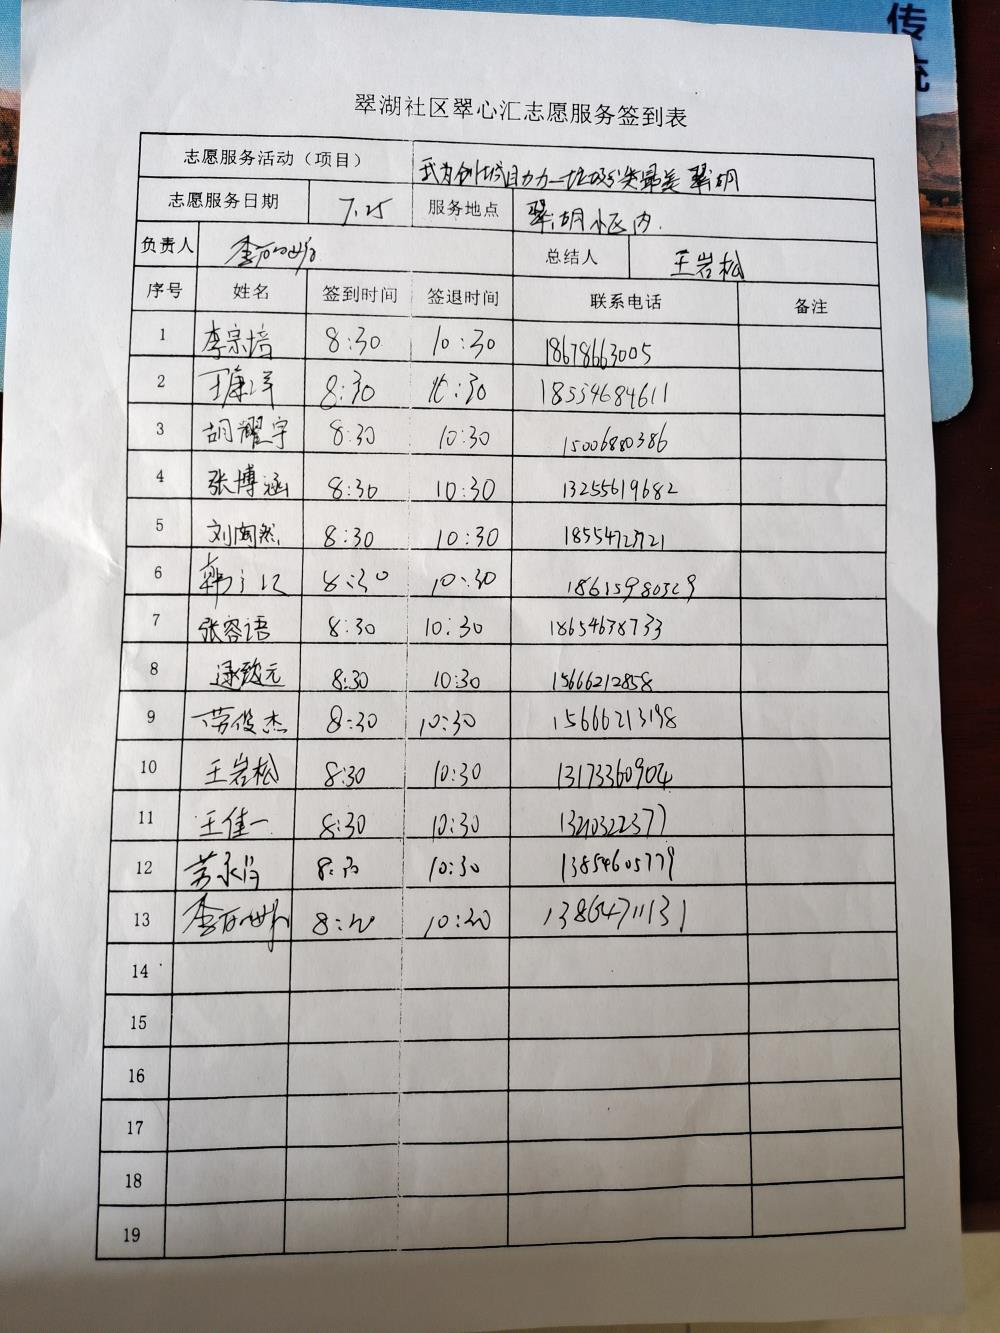 传
统
翠湖社区翠心汇志愿服务签到表
志愿服务活动（项目） 我为创城助力—垃圾分类最美翠湖
志愿服务日期 7.25 服务地点 翠湖社区内.
负责人 总结人 王岩松
序号 姓名 签到时间 签退时间 联系电话 备注
1 李宗培 8:30 10:30 18678663005
2 王康洋 8:30 10:30 18554684611
3 胡耀宇 8:30 10:30 15006880386
4 张博涵 8:30 10:30 13255619682
5 刘闻然 8:30 10:30
6 韩 8:30 10:30
7 张容语 8:30 10:30 18654638733
8 逯致元 8:30 10:30 15666212858
9 劳俊杰 8:30 10:30 15666213198
10 王岩松 8:30 10:30 13173360904
11 王佳一 8:30 10:30
12 苏 8:30 10:30 13854605779
13 李 8:30 10:30 13864711131
14
15
16
17
18
19